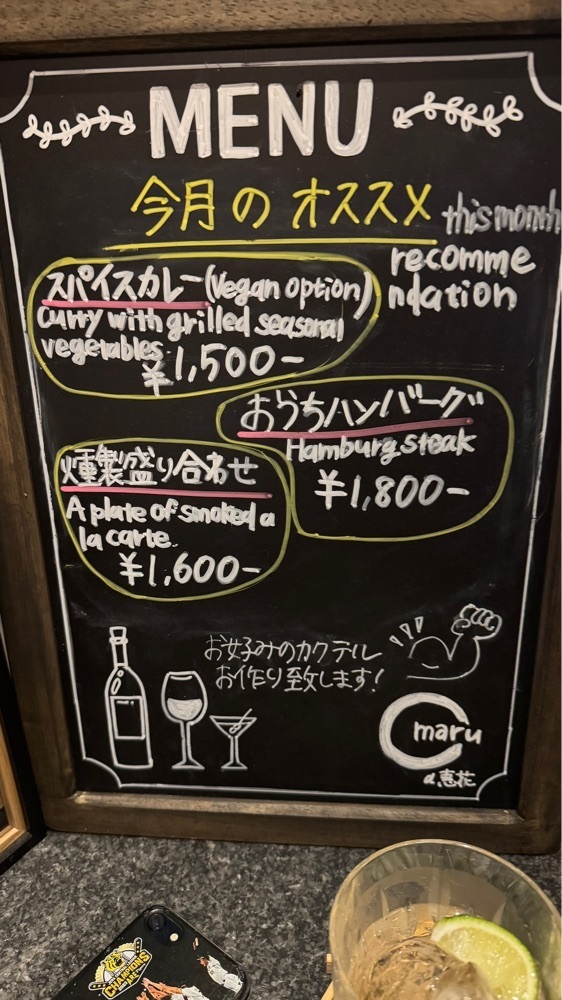 MENU
今月のオススメ this month
recomme
ndation
スパイスカレー(Vegan option)
Curry with grilled seasonal
vegetables
¥1,500-
おうちハンバーグ
Hamburg steak
¥1,800-
燻製盛り合わせ
A plate of smoked a
la carte.
¥1,600-
お好みのカクテル
お作り致します!
maru
a.恵花
CHAMPIONS